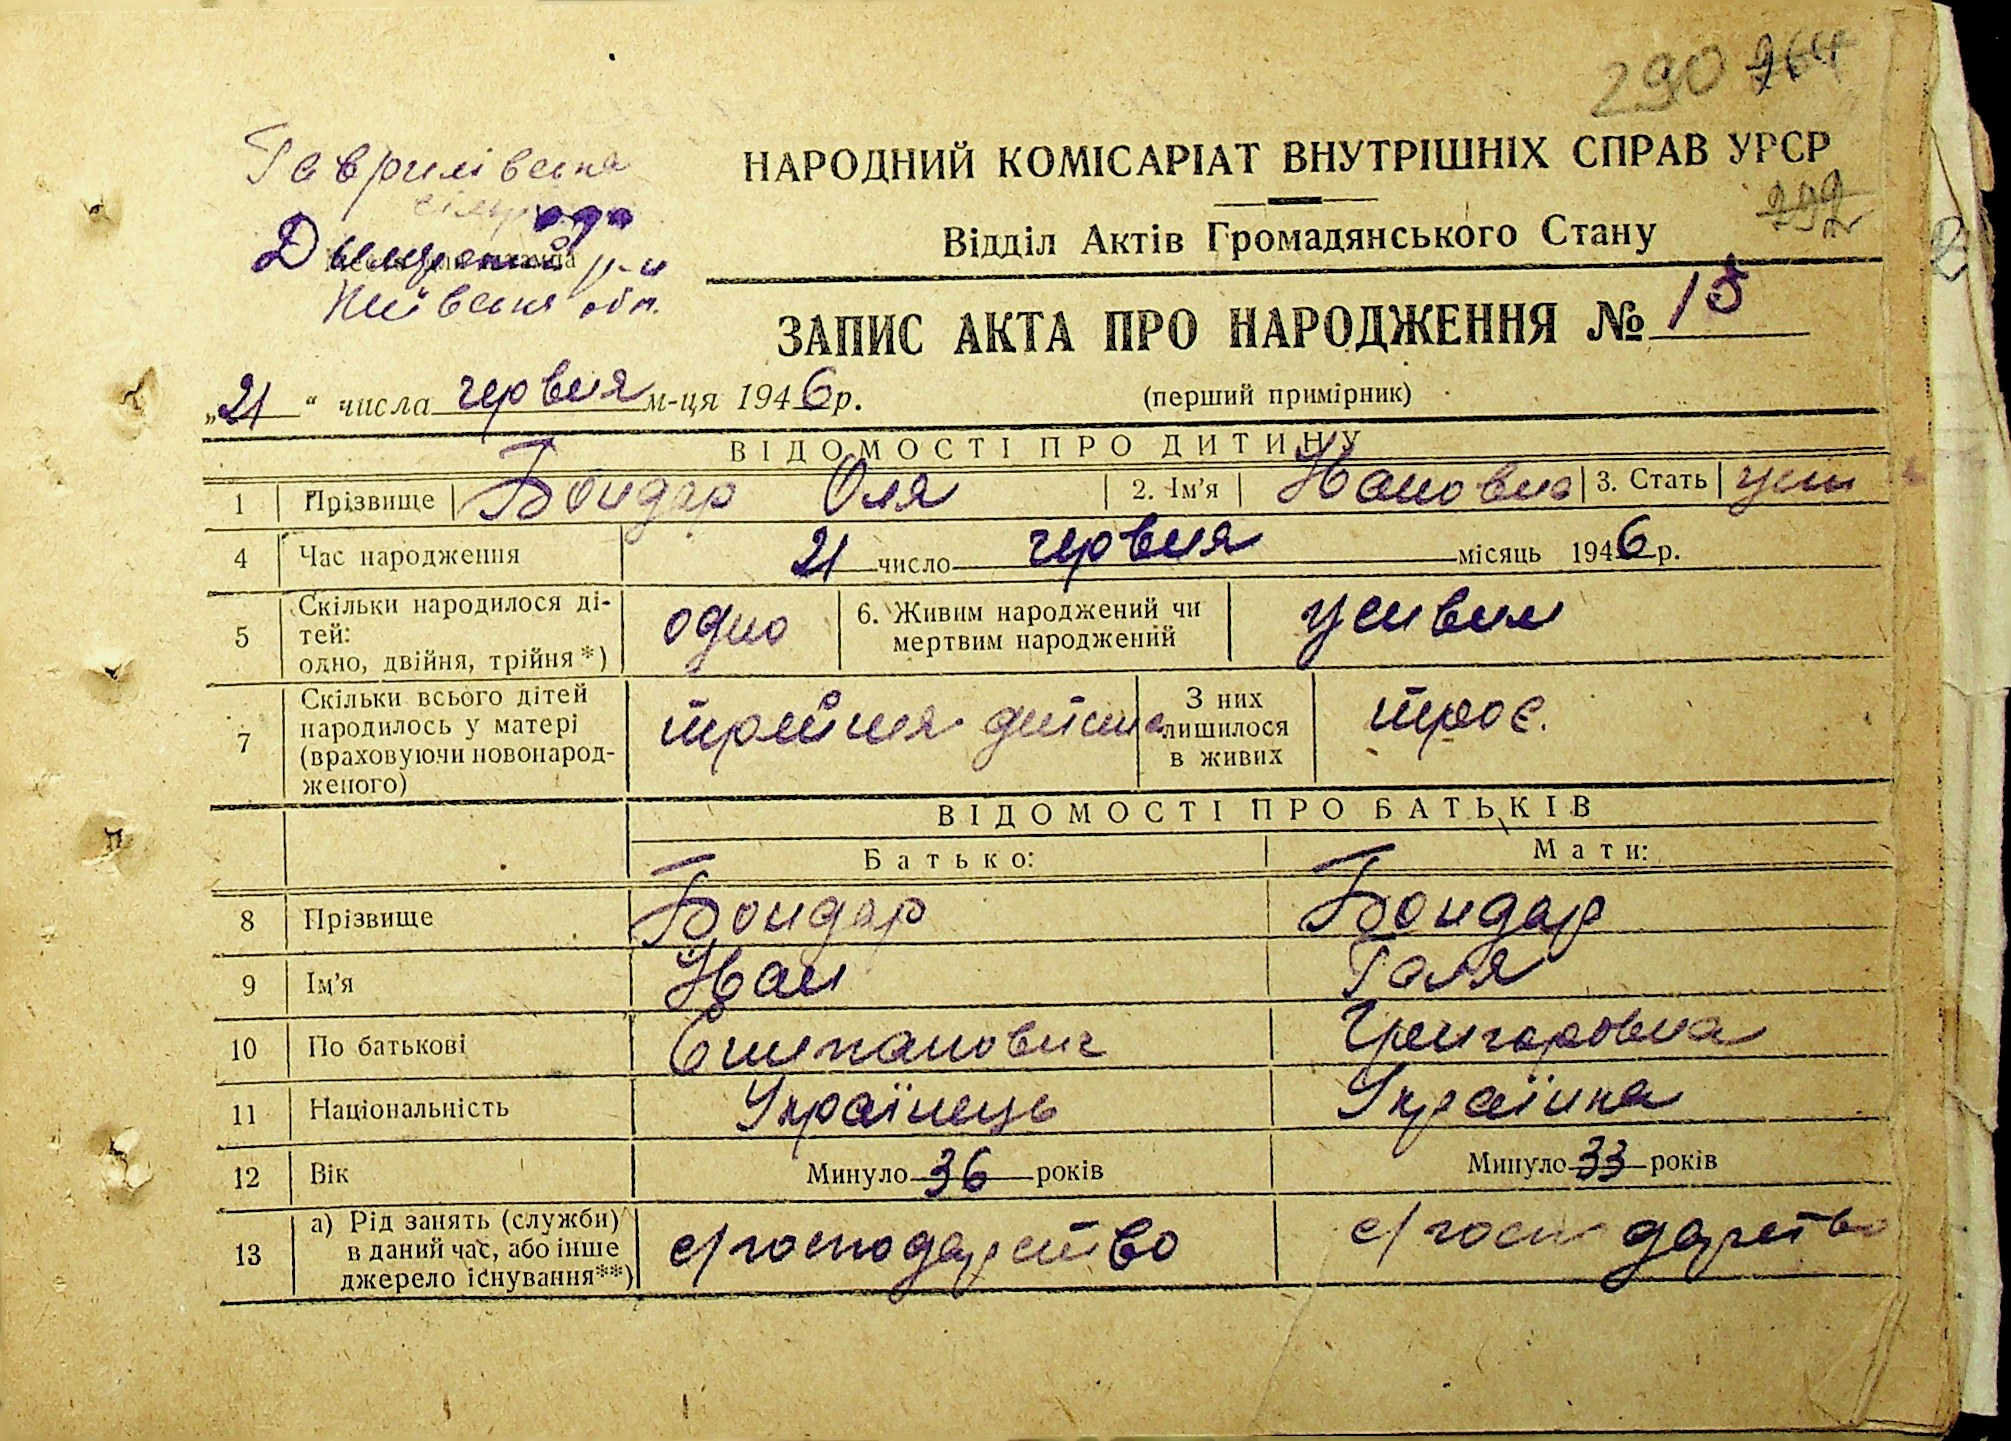 290 264
Гаврилівська
сільрада
Димерський р-н
Київська обл.
НАРОДНИЙ КОМІСАРІАТ ВНУТРІШНІХ СПРАВ УРСР
299
Відділ Актів Громадянського Стану
ЗАПИС АКТА ПРО НАРОДЖЕННЯ № 15
„21“ числа червня м-ця 1946 р.
(перший примірник)
ВІДОМОСТІ ПРО ДИТИНУ
1 Прізвище Бондар Оля 2. Ім'я Івановна 3. Стать жін
4 Час народження 21 число червня місяць 1946 р.
5 Скільки народилося ді-
тей:
одно, двійня, трійня*) одно 6. Живим народжений чи
мертвим народжений живим
7 Скільки всього дітей
народилось у матері
(враховуючи новонарод-
женого) З них
лишилося
в живих троє.
ВІДОМОСТІ ПРО БАТЬКІВ
Батько: Мати:
8 Прізвище Бондар Бондар
9 Ім'я Іван Галя
10 По батькові Степанович Григоровна
11 Національність Українець Українка
12 Вік Минуло 36 років Минуло 33 років
13 а) Рід занять (служби)
в даний час, або інше
джерело існування**) с/господарство с/господарство